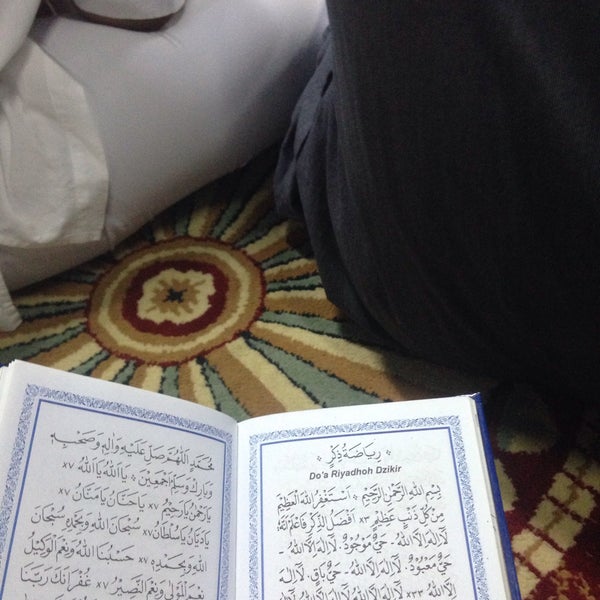 مُحَمَّدٍ اَللّٰهُمَّ صَلِّ عَلَيْهِ وَاٰلِهِ وَصَحْبِهِ
وَبَارِكْ وَسَلِّمْ اَجْمَعِيْنَ * يَااَللهُ يَااَللهُ ٧×
يَارَحْمٰنُ يَارَحِيْمُ ٧× يَاحَنَّانُ يَامَنَّانُ ٧×
يَادَيَّانُ يَاسُلْطَانُ ٧× سُبْحَانَ اللهِ وَبِحَمْدِهِ سُبْحَانَ
اللهِ وَبِحَمْدِهِ ٧× حَسْبُنَا اللهُ وَنِعْمَ الْوَكِيْلُ
نِعْمَ الْمَوْلٰى وَنِعْمَ النَّصِيْرُ ٧× غُفْرَانَكَ رَبَّنَا
* رِيَاضَةُ ذِكْرٍ *
Do'a Riyadhoh Dzikir
بِسْمِ اللهِ الرَّحْمٰنِ الرَّحِيْمِ * اَسْتَغْفِرُ اللهَ الْعَظِيْمَ
مِنْ كُلِّ ذَنْبٍ عَظِيْمٍ ٣× اَفْضَلُ الذِّكْرِ فَاعْلَمْ اَنَّهُ
لَااِلٰهَ اِلَّااللهُ - حَيٌّ مَوْجُوْدٌ - لَااِلٰهَ اِلَّااللهُ
حَيٌّ مَعْبُوْدٌ - لَااِلٰهَ اِلَّااللهُ - حَيٌّ بَاقٍ - لَااِلٰهَ
اِلَّااللهُ ٣٣× لَااِلٰهَ اِلَّااللهُ